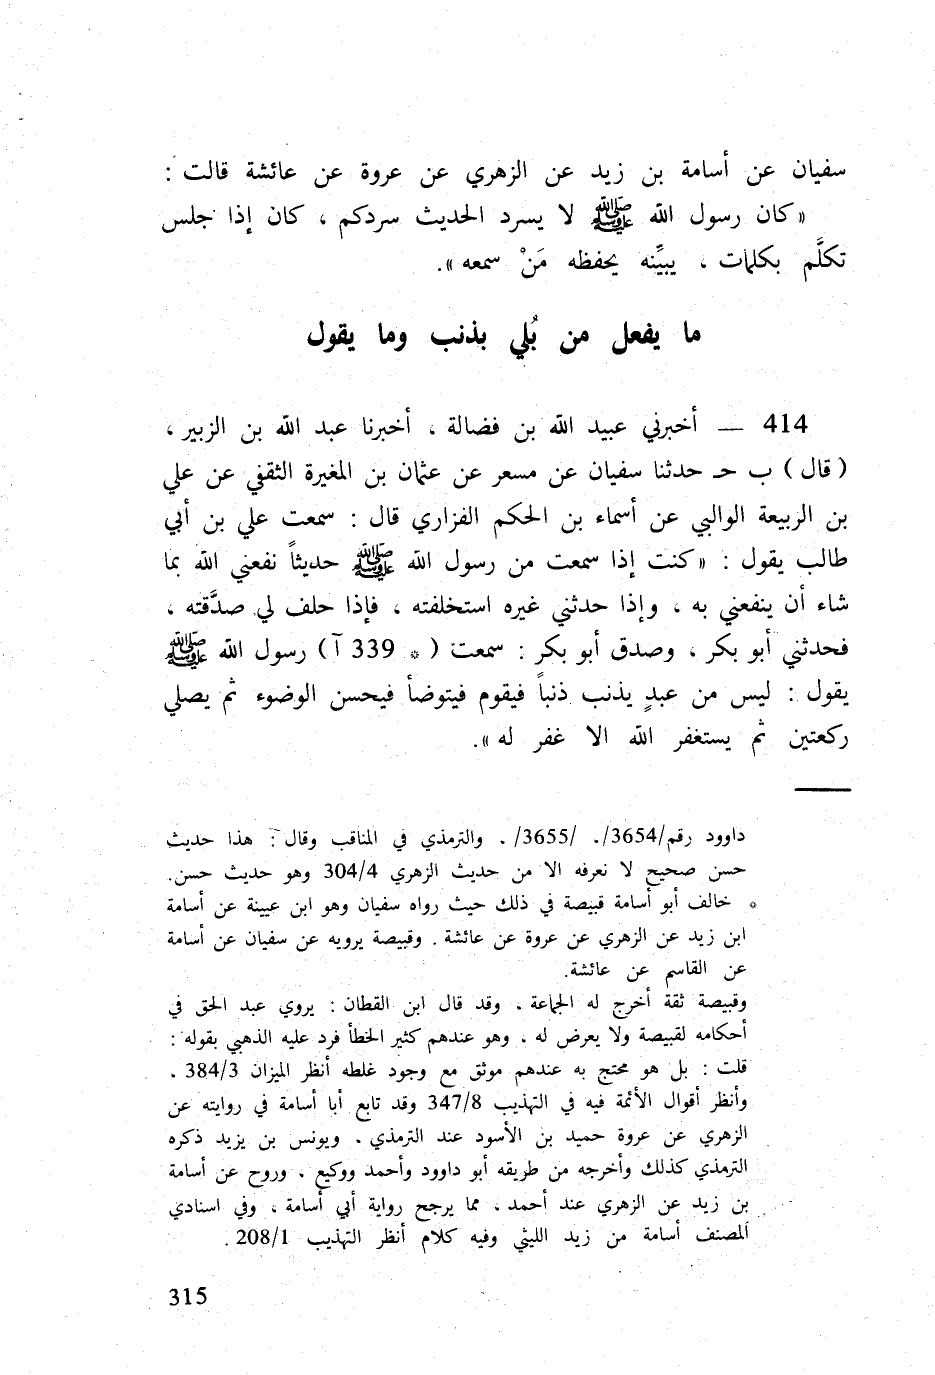 سفيان عن أسامة بن زيد عن الزهري عن عروة عن عائشة قالت :
« كان رسول الله ﷺ لا يسرد الحديث سردكم ، كان إذا جلس
تكلَّم بكلمات ، يبيِّنه يحفظه مَنْ سمعه ».
ما يفعل من بُلي بذنب وما يقول
414 — أخبرني عبيد الله بن فضالة ، أخبرنا عبد الله بن الزبير ،
( قال ) ب حـ حدثنا سفيان عن مسعر عن عثمان بن المغيرة الثقفي عن علي
بن الربيعة الوالبي عن أسماء بن الحكم الفزاري قال : سمعت علي بن أبي
طالب يقول : « كنت إذا سمعت من رسول الله ﷺ حديثاً نفعني الله بما
شاء أن ينفعني به ، وإذا حدثني غيره استخلفته ، فإذا حلف لي صدَّقته ،
فحدثني أبو بكر ، وصدق أبو بكر : سمعت ( * 339 آ ) رسول الله ﷺ
يقول : ليس من عبدٍ يذنب ذنباً فيقوم فيتوضأ فيحسن الوضوء ثم يصلي
ركعتين ثم يستغفر الله الا غفر له ».
داوود رقم/3654/. /3655/ . والترمذي في المناقب وقال : هذا حديث
حسن صحيح لا نعرفه الا من حديث الزهري 304/4 وهو حديث حسن.
* خالف أبو أسامة قبيصة في ذلك حيث رواه سفيان وهو ابن عيينة عن أسامة
ابن زيد عن الزهري عن عروة عن عائشة . وقبيصة يرويه عن سفيان عن أسامة
عن القاسم عن عائشة.
وقبيصة ثقة أخرج له الجماعة ، وقد قال ابن القطان : يروي عبد الحق في
أحكامه لقبيصة ولا يعرض له ، وهو عندهم كثير الخطأ فرد عليه الذهبي بقوله :
قلت : بل هو محتج به عندهم موثق مع وجود غلطه أنظر الميزان 384/3 .
وأنظر أقوال الأئمة فيه في التهذيب 347/8 وقد تابع أبا أسامة في روايته عن
الزهري عن عروة حميد بن الأسود عند الترمذي . ويونس بن يزيد ذكره
الترمذي كذلك وأخرجه من طريقه أبو داوود وأحمد ووكيع ، وروح عن أسامة
بن زيد عن الزهري عند أحمد ، مما يرجح رواية أبي أسامة ، وفي اسنادي
المصنف أسامة من زيد الليثي وفيه كلام أنظر التهذيب 208/1 .
315